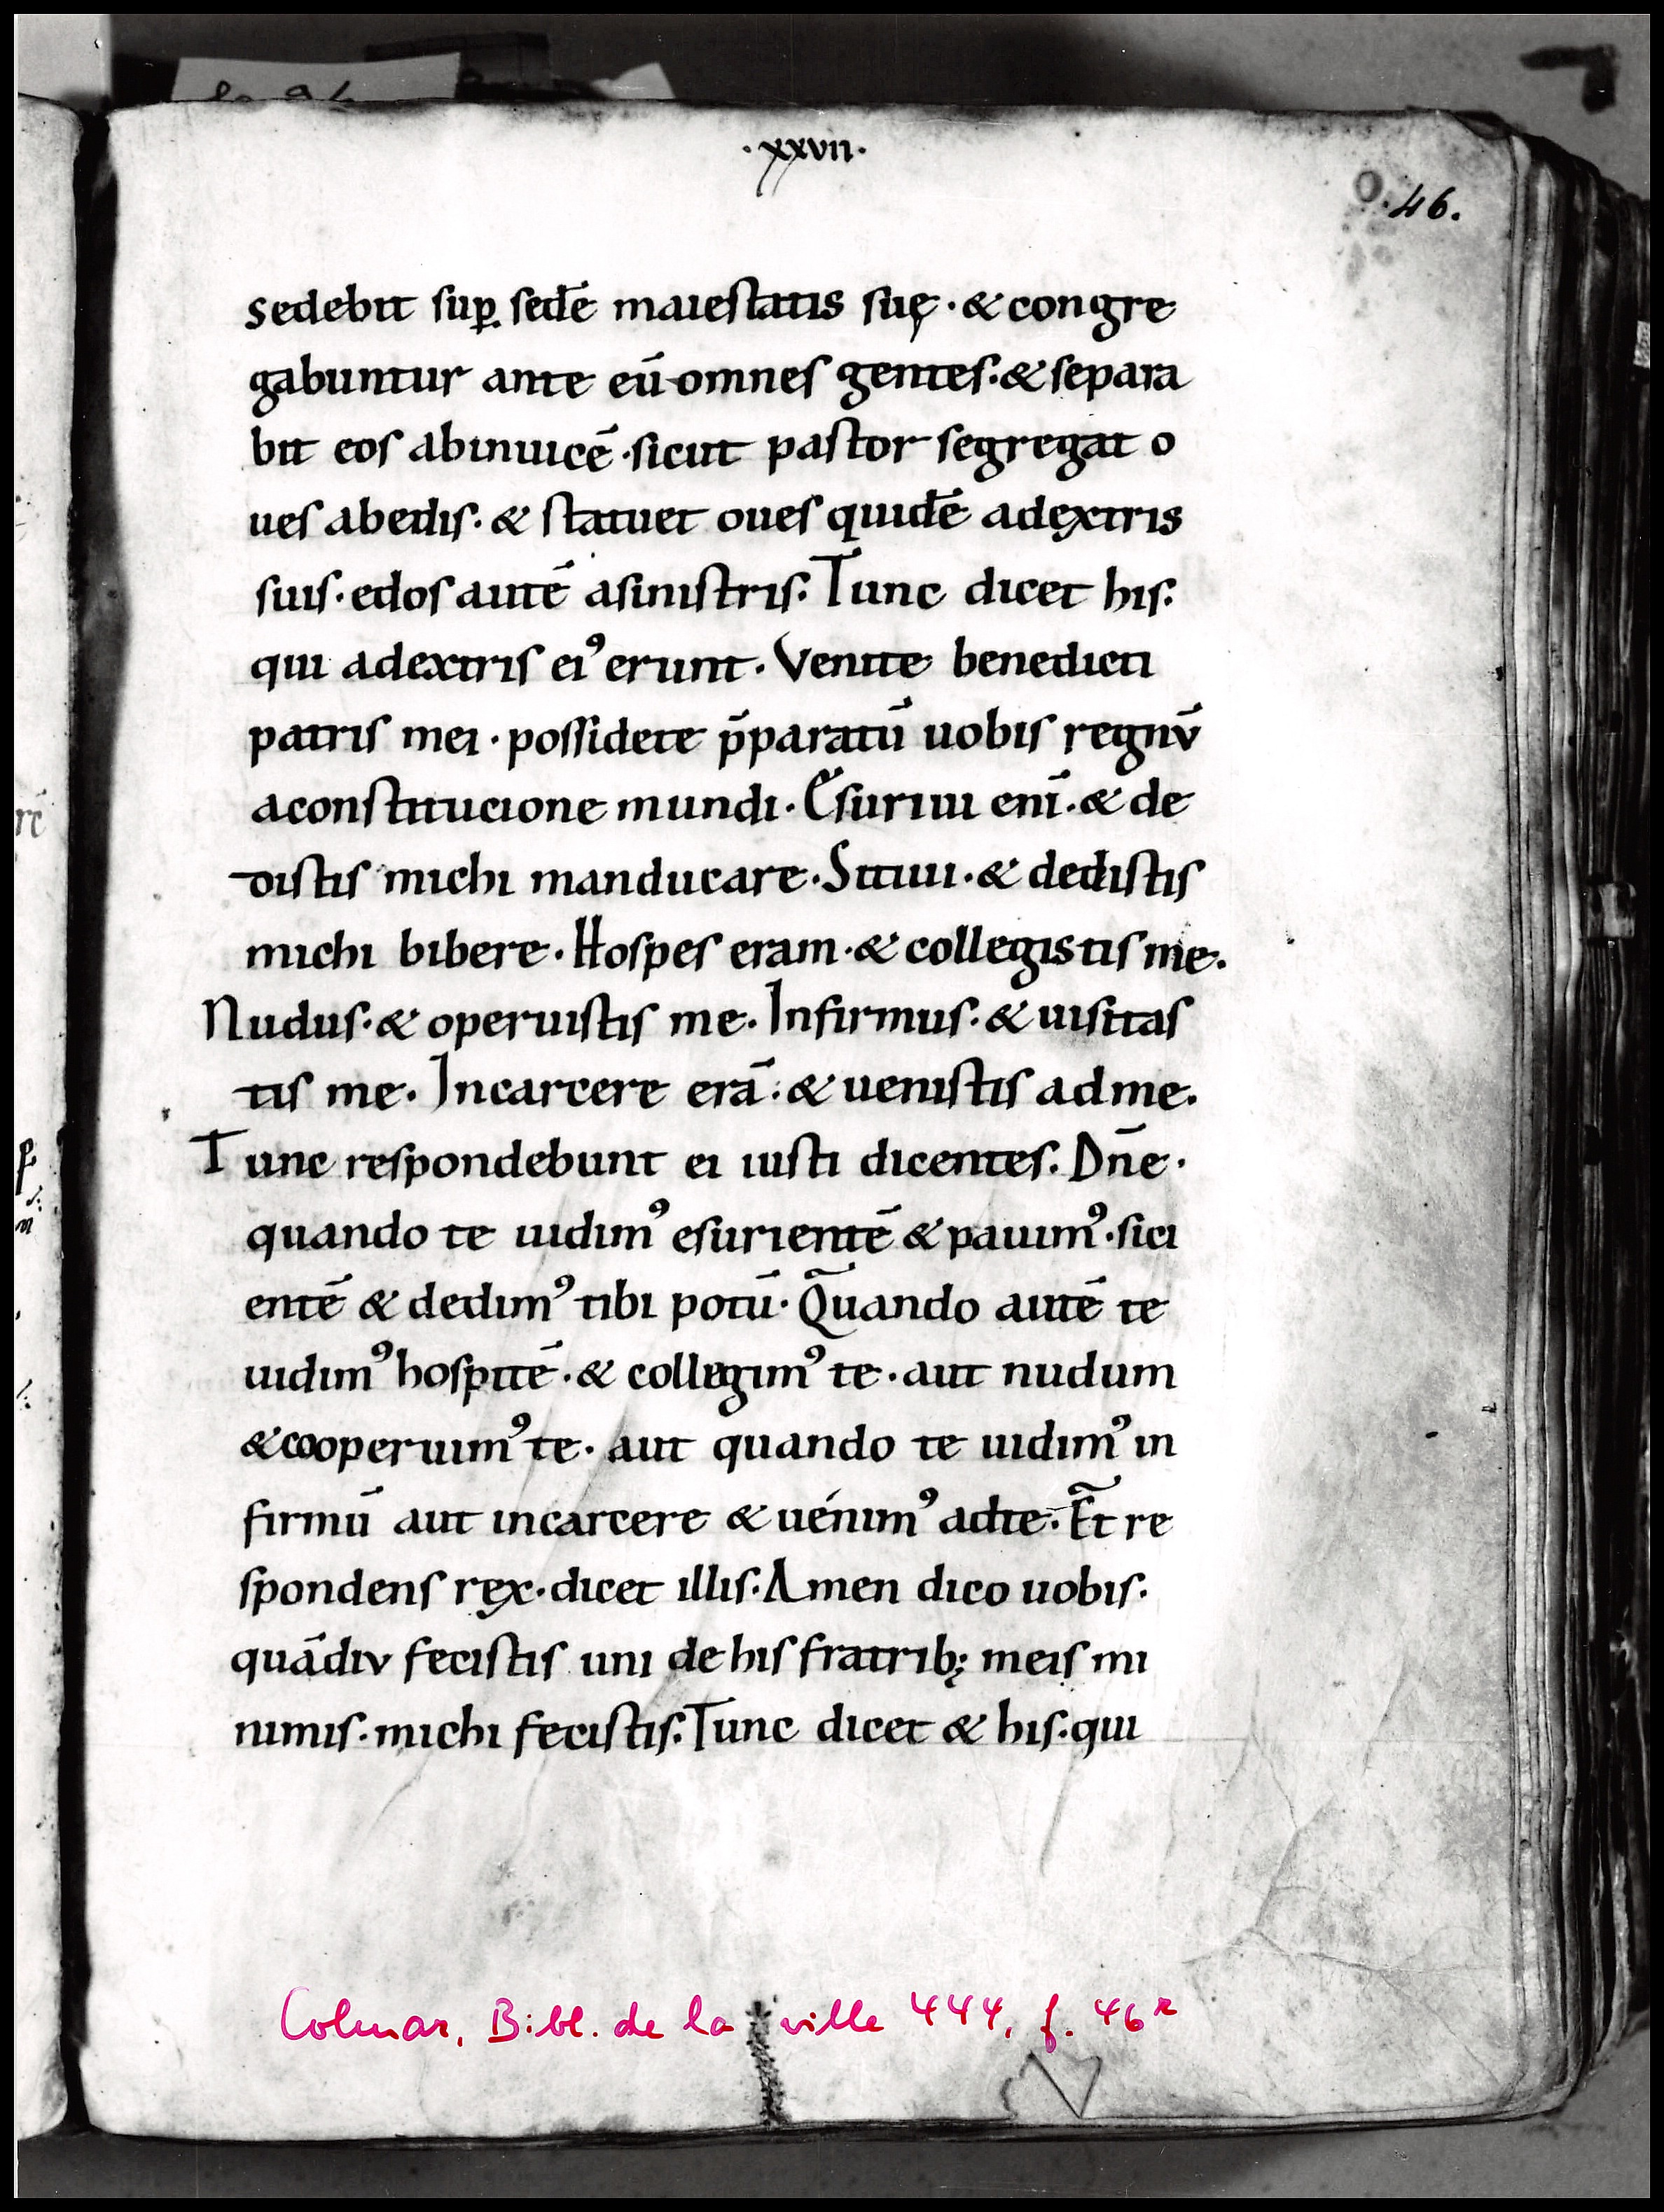 ·xxvii·
46.
sedebit sup̱ sedē maiestatis suę · & congre
gabuntur ante eū omnes gentes · & separa
bit eos abinuicē · sicut pastor segregat o
ues abedis · & statuet oues quidē adextris
suis · edos autē asinistris · Tunc dicet his ·
qui adextris eiꝰ erunt · Venite benedicti
patris mei · possidete p̄paratū uobis regnv̄
aconstitucione mundi · Esuriui enī · & de
distis michi manducare · Sitiui · & dedistis
michi bibere · Hospes eram · & collegistis me.
Nudus · & operuistis me. Infirmus · & uisitas
tis me. Incarcere erā · & uenistis adme.
Tunc respondebunt ei iusti dicentes. Dn̄e ·
quando te uidimꝰ esurientē & pauimꝰ · sici
entē & dedimꝰ tibi potū · Quando autē te
uidimꝰ hospitē · & collegimꝰ te · aut nudum
& cooperuimꝰ te · aut quando te uidimꝰ in
firmū aut incarcere & uenimꝰ adte · Et re
spondens rex · dicet illis · Amen dico uobis ·
quādiv fecistis uni de his fratrib; meis mi
nimis · michi fecistis · Tunc dicet & his · qui
Colmar, Bibl. de la ville 444, f. 46r